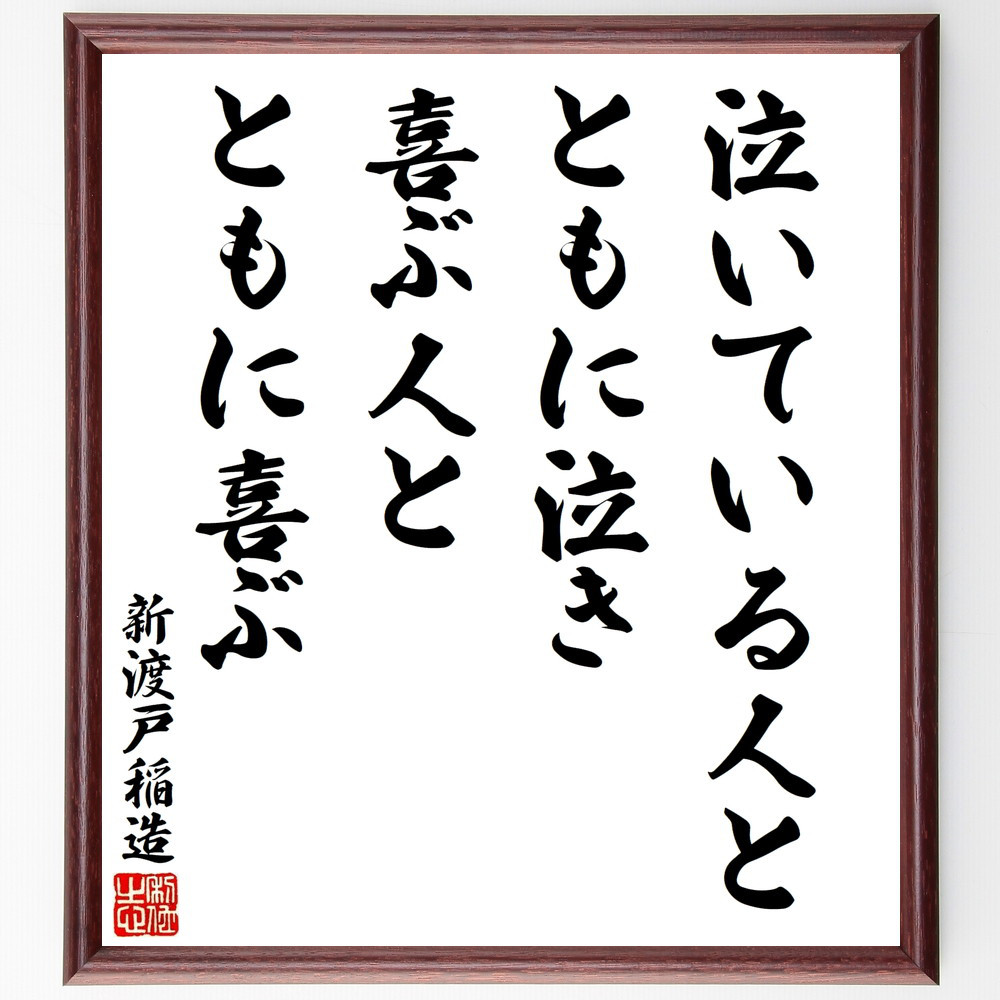 泣いている人と
ともに泣き
喜ぶ人と
ともに喜ぶ
新渡戸稲造